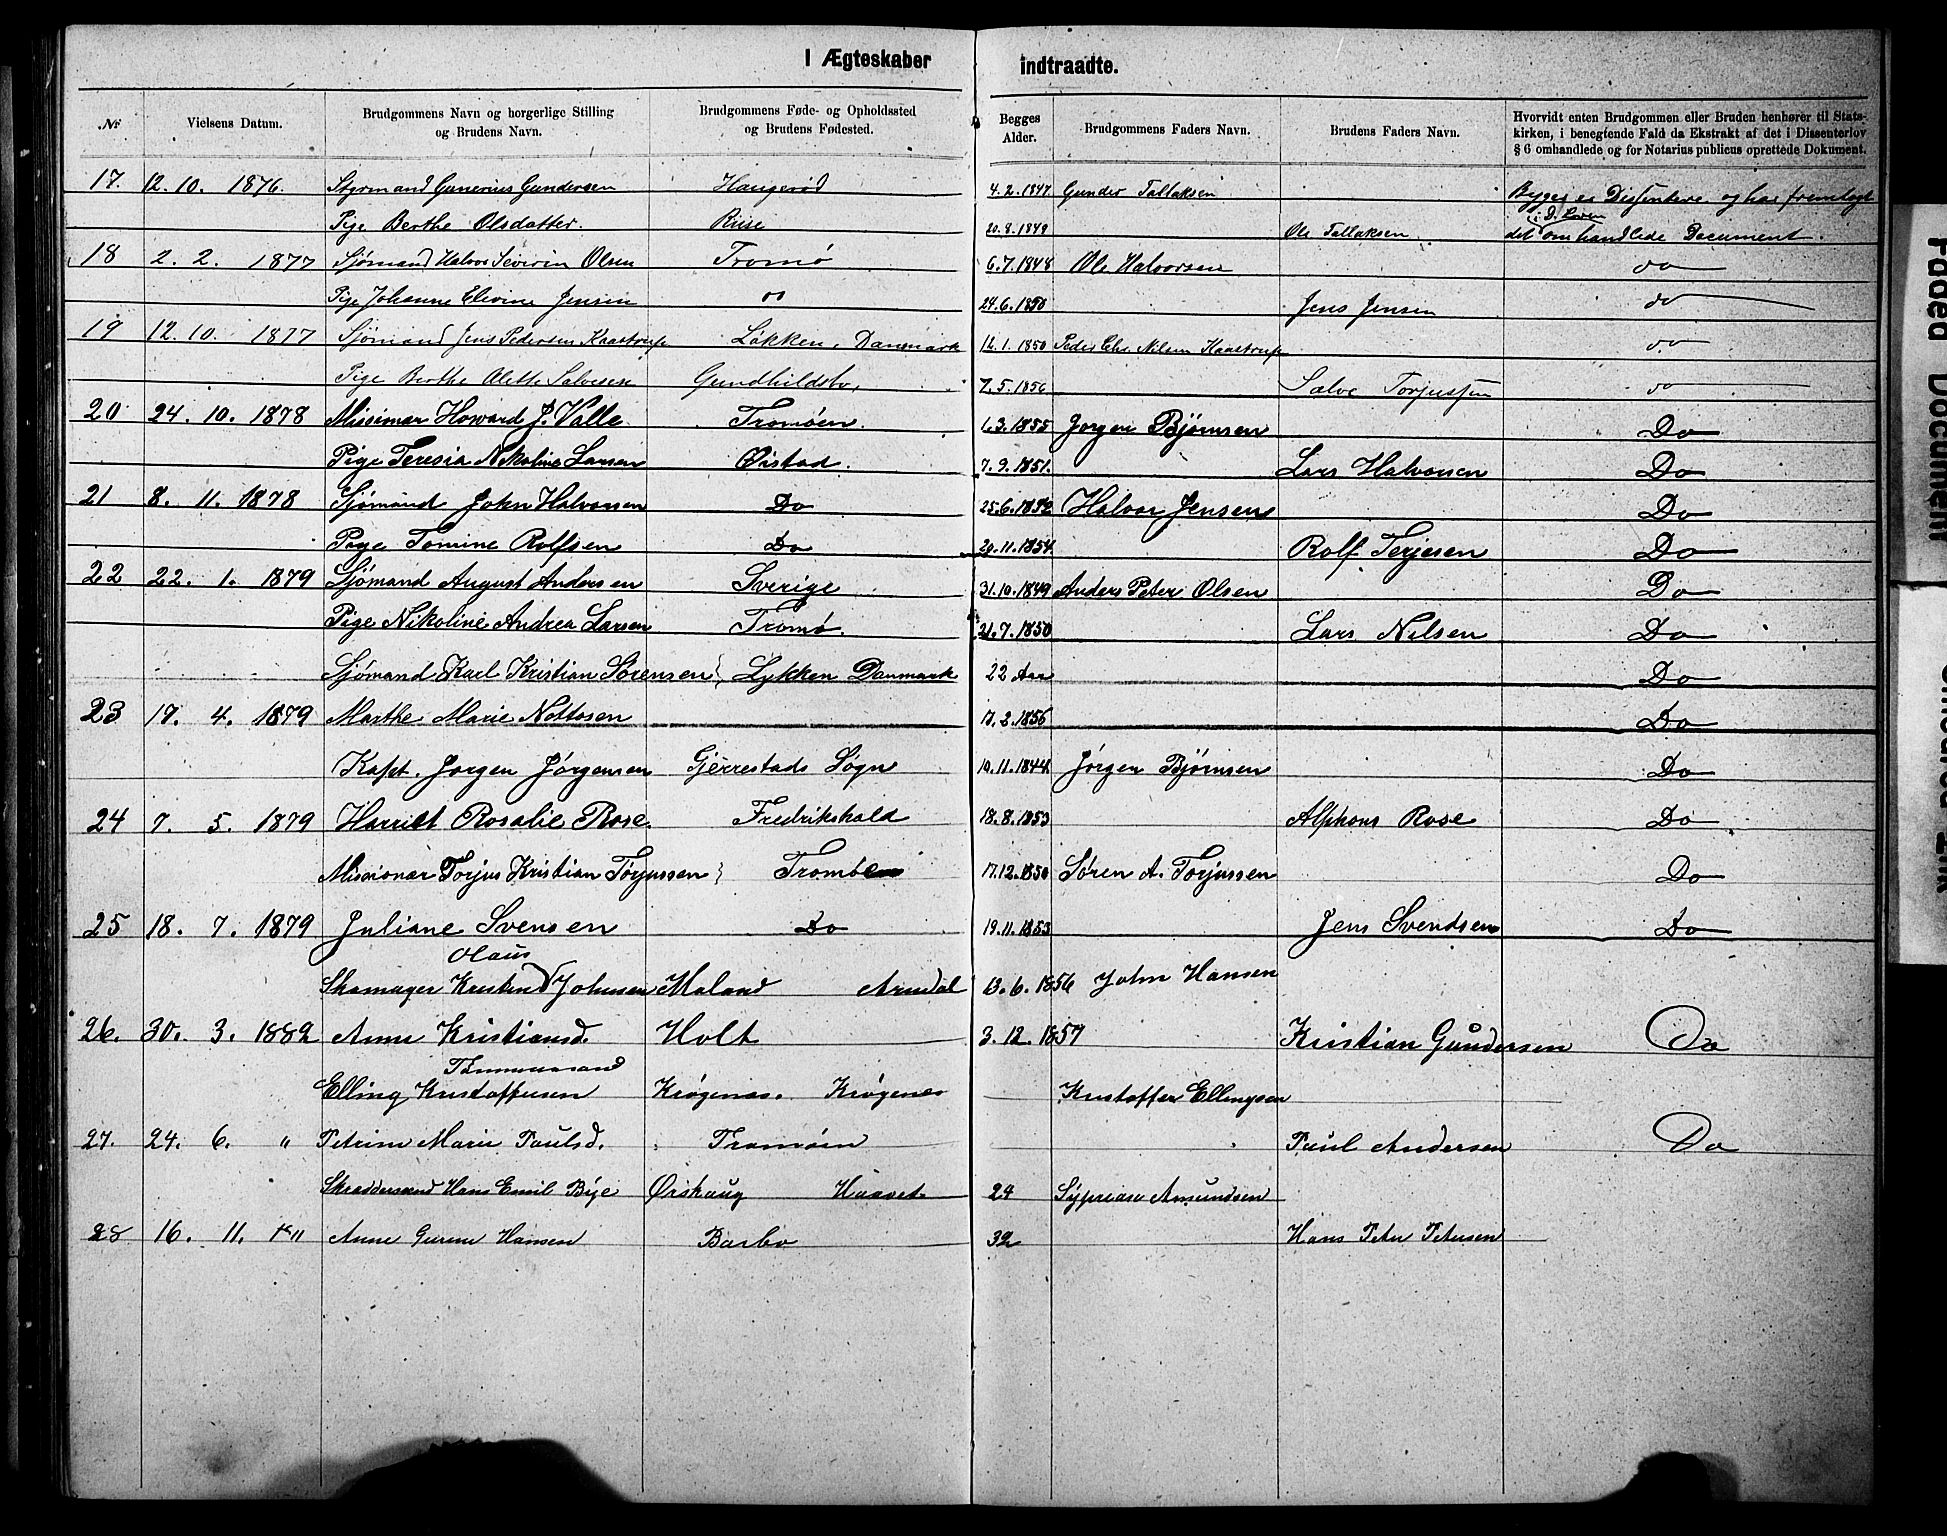 I Ægteskaber indtraadte.
№ Vielsens Datum. Brudgommens Navn og borgerlige Stilling og Brudens Navn. Brudgommens Føde- og Opholdssted og Brudens Fødested. Begges Alder. Brudgommens Faders Navn. Brudens Faders Navn. Hvorvidt enten Brudgommen eller Bruden henhører til Statskirken, i benegtende Fald da Ekstrakt af det i Dissenterlov § 6 omhandlede og for Notarius publicus oprettede Dokument.
17. 12. 10. 1876. Styrmand Gunerius Gundersen Haugerød 4.2.1847 Gunder Tallaksen Begge er Dissentere og har fremlagt
Pige Berthe Olsdatter. Riise 20.8.1849 Ole Tallaksen. det i D. Loven omhandlede Document.
18 2. 2. 1877 Sjømand Halvor Severin Olsen Tromø 6.7.1848 Ole Halvorsen do
Pige Johanne Elevine Jensen do 24.6.1850 Jens Jensen do
19 12. 10. 1877 Sjømand Jens Pedersen Kaastrup Løkken, Danmark 12.1.1850 Peder Chr. Nilsen Kaastrup do
Pige Berthe Olette Salvesen Gundhildsbo, 7.5.1856 Salve Torjussen do
20 24. 10. 1878 Missionær Howard J. Valle Tromøen. 1.3.1855 Jorgen Bjørnsen Do
Pige Teresia Nikoline Larsen Øistad. 7.9.1851. Lars Halvorsen Do
21 8. 11. 1878 Sjømand John Halvorsen Do 25.6.1852 Halvor Jensen Do
Pige Tomine Rolfsen Do 20.11.1854. Rolf Terjesen Do
22 22. 1. 1879 Sjømand August Andersen Sverige 31.10.1849 Anders Peter Olsen Do
Pige Nikoline Andrea Larsen Tromø. 21.7.1850 Lars Nilsen Do
Sjømand Karl Kristian Sørensen Lykken Danmark 22 Aar Do
23 17. 4. 1879 Marthe Marie Nottosen 17.2.1856 Do
Kapt. Jorgen Jørgensen Gjerrestads Sogn 19.11.1844 Jørgen Bjørnsen Do
24 7. 5. 1879 Harriet Rosalie Rose. Fredrikshald 18.8.1853 Alphons Rose Do
Missionær Torjus Kristian Torjussen Tromøen 17.12.1850 Søren A. Torjussen Do
25 18. 7. 1879 Juliane Svensen Do 19.11.1853 Jens Svendsen Do
Olaus
Skomager Kristind Johnsen Moland Arendal 13.6.1856 John Hansen
26. 30. 3. 1882 Anne Kristiansd. Holt 3.12.1857 Kristian Gundersen Do
Tømmermand
Elling Kristoffersen Krøgenes. Krøgenes Kristoffer Ellingsen
27. 24. 6. " Petrine Marie Paulsd. Tromøen Paul Andersen Do
Skreddersvend Hans Emil Bye Ørskaug 24 Amundsen
28 16. 11. Anne Hansen Barbo 32 Hans Peter Petersen
Faded Document